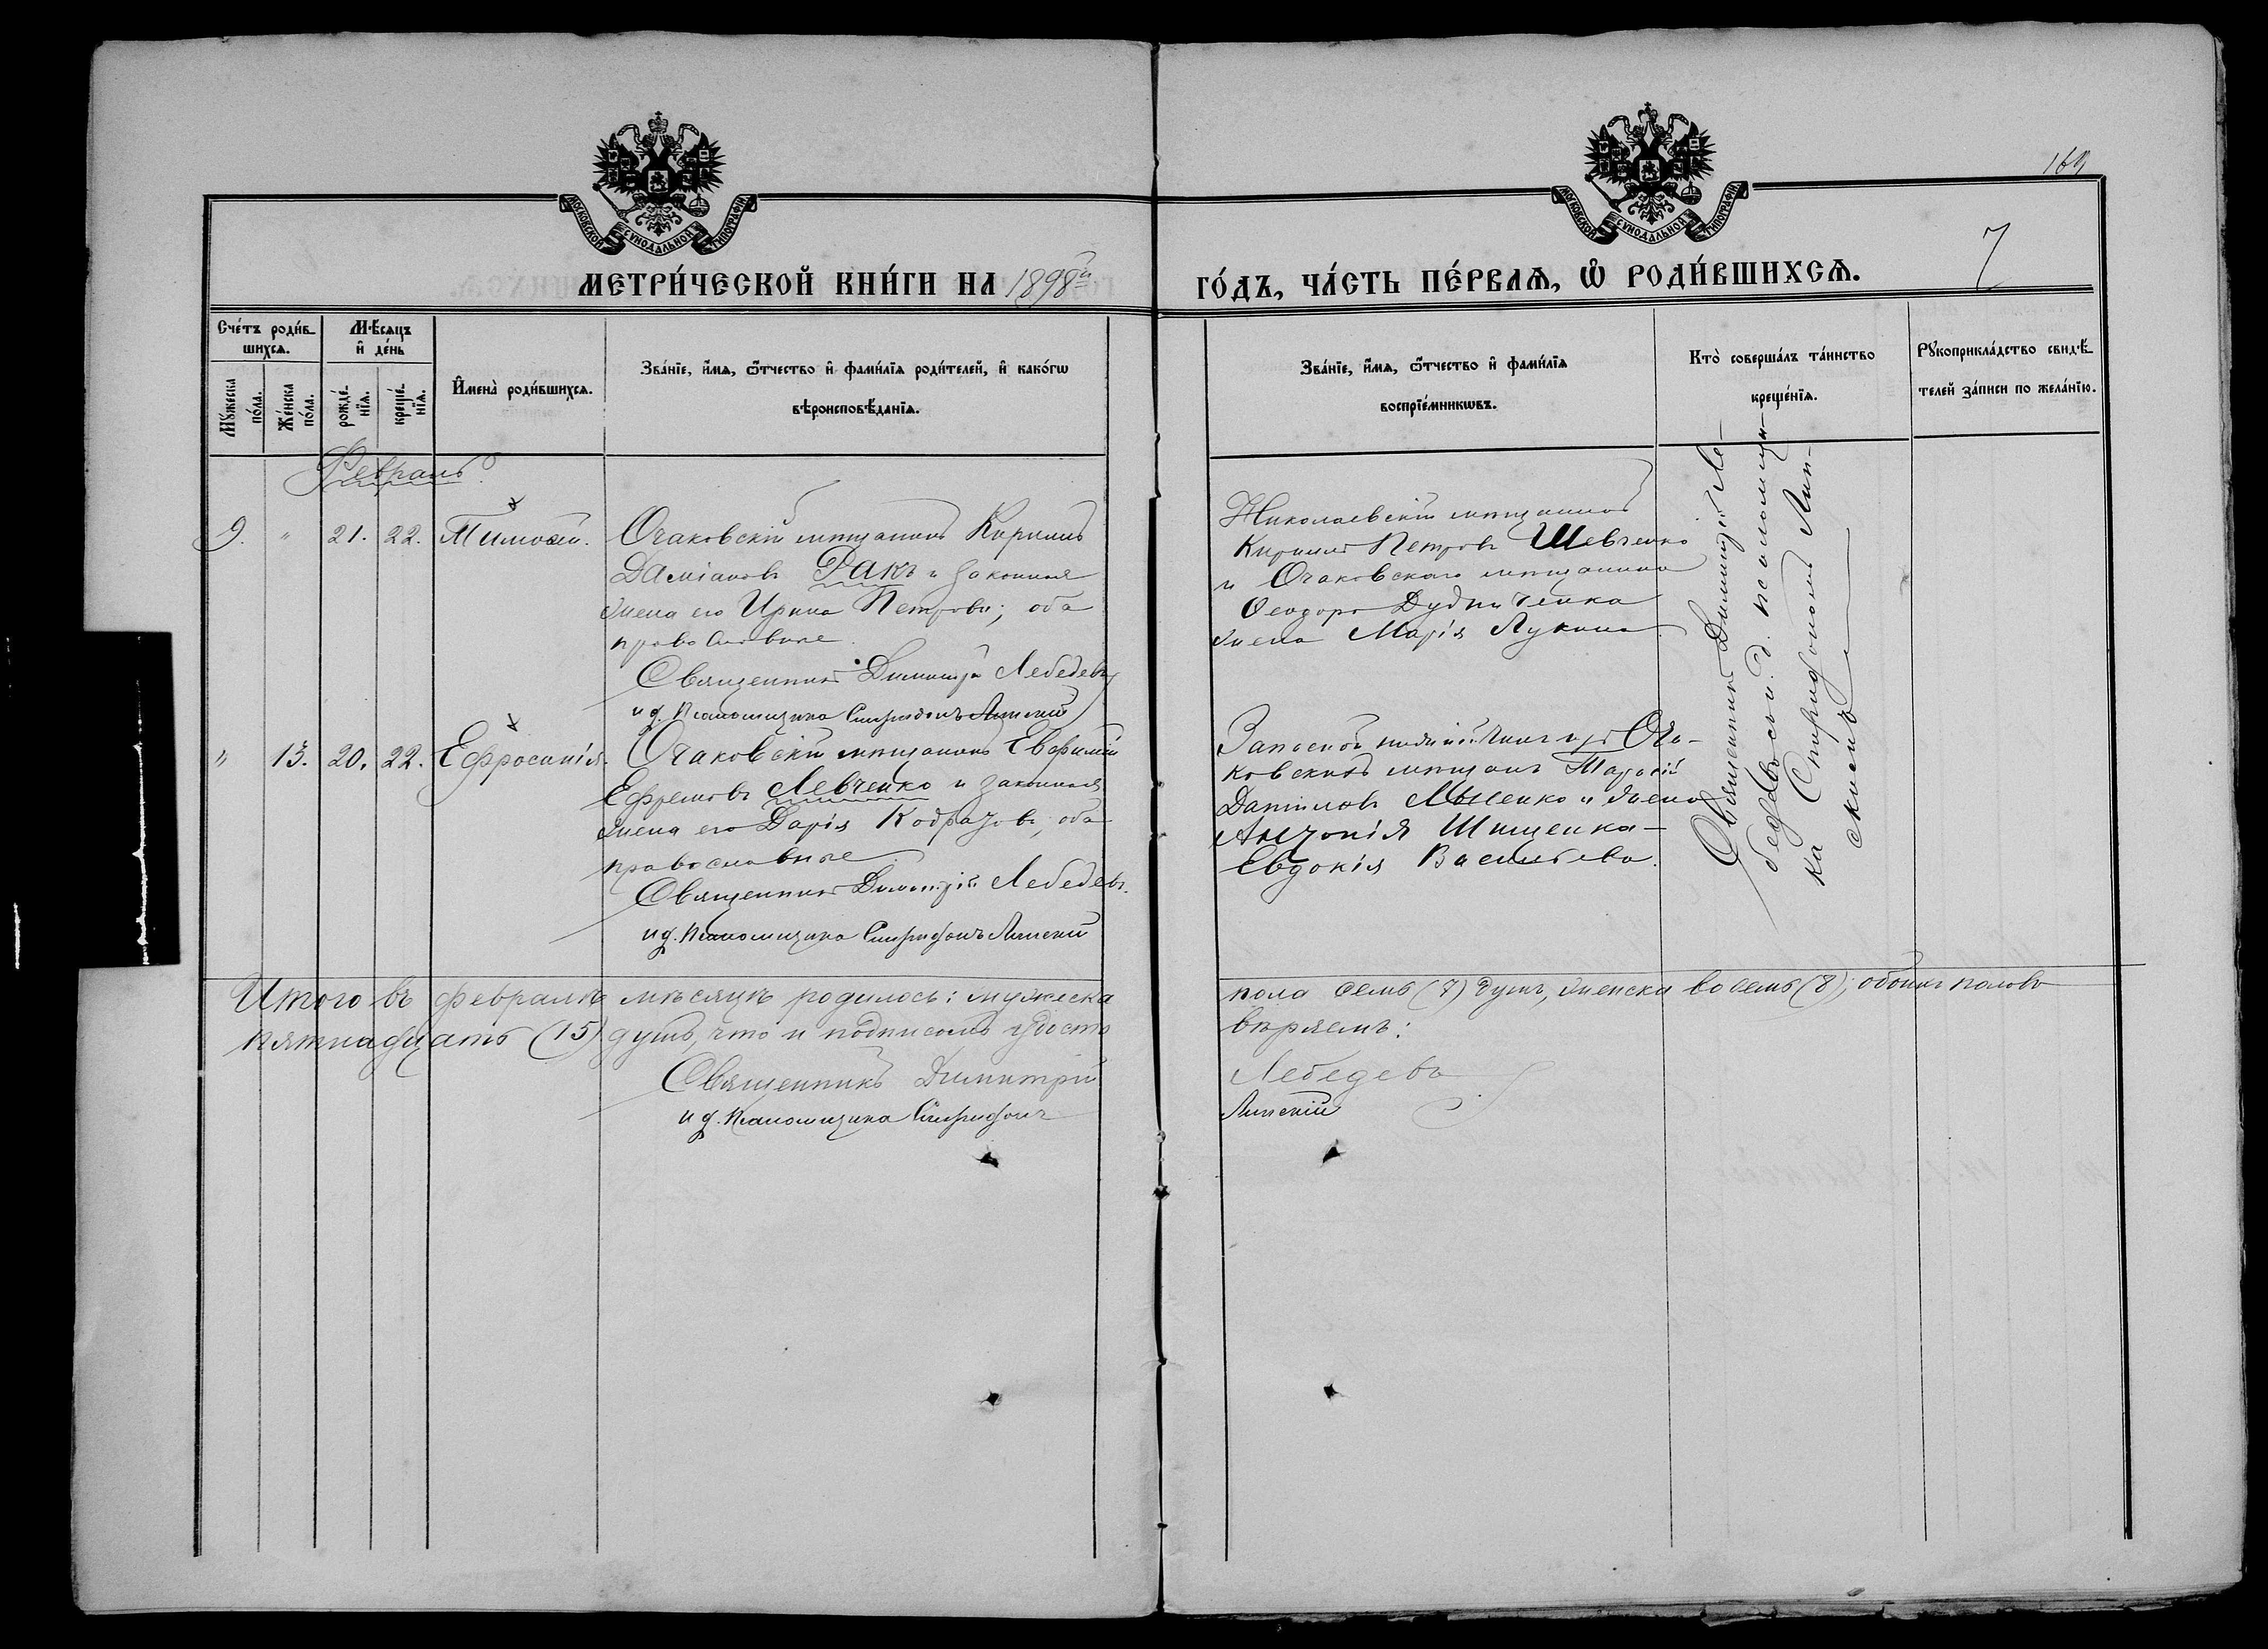 169
7
МОСКОВСКОЙ СУНОДАЛЬНОЙ ТИПОГРАФІИ
МОСКОВСКОЙ СУНОДАЛЬНОЙ ТИПОГРАФІИ
МЕТРИ́ЧЕСКОЙ КНИ́ГИ НА 1898й
ГО́ДЪ, ЧА́СТЬ ПЕ́РВАѦ, Ѡ҆ РОДИ́ВШИХСѦ.
Сче́тъ роди́в-
шихсѧ.
Мꙋ́жеска
по́ла.
Же́нска
по́ла.
Мѣ́сяцъ
и҆ де́нь
рожде́-
нїѧ.
креще́-
нїѧ.
И҆мена̀ роди́вшихсѧ.
Зва́нїе, и҆́мѧ, ѻ҆́тчество и҆ фами́лїѧ роди́телей, и҆ како́гѡ
вѣроисповѣ́данїѧ.
Зва́нїе, и҆́мѧ, ѻ҆́тчество и҆ фами́лїѧ
воспрїе́мникѡвъ.
Кто̀ соверша́лъ та́инство
креще́нїѧ.
Рꙋкоприкла́дство свидѣ́-
телей за́писи по жела́нїю.
Февраль
9. " 21. 22. Тимоѳей.
Очаковскій мѣщанинъ Кириллъ
Даміановъ Ракъ и законная
жена его Ирина Петрова; оба
православные.
Священникъ Димитрій Лебедевъ
и д. Псаломщика Спиридонъ Липскій
Николаевскій мѣщанинъ
Кириллъ Петровъ Шевченко
и Очаковскаго мѣщанина
Ѳеодора Дудниченка
жена Марія Лукина.
" 13. 20. 22. Ефросинія.
Очаковскій мѣщанинъ Евфимій
Ефремовъ Левченко и законная
жена его Дарія Кодратова, оба
православные.
Священникъ Димитрій Лебедевъ.
и д. Псаломщика Спиридонъ Липскій
Запасной нижній чинъ изъ Оча-
ковскихъ мѣщанъ Тарасій
Даніиловъ и жена
Антонія Шищенка-
Евдокія Васильева.
Священникъ Димитрій Ле-
бедевъ съ и. д. псаломщи-
ка Спиридономъ Лип-
скимъ
Итого въ февралѣ мѣсяцѣ родилось: мужеска
пола семь (7) душъ, женска восемь (8); обоихъ половъ
пятнадцать (15) душъ, что и подписомъ удосто
вѣряемъ:
Священникъ Димитрій
Лебедевъ
и д. Псаломщика Спиридонъ
Липскій